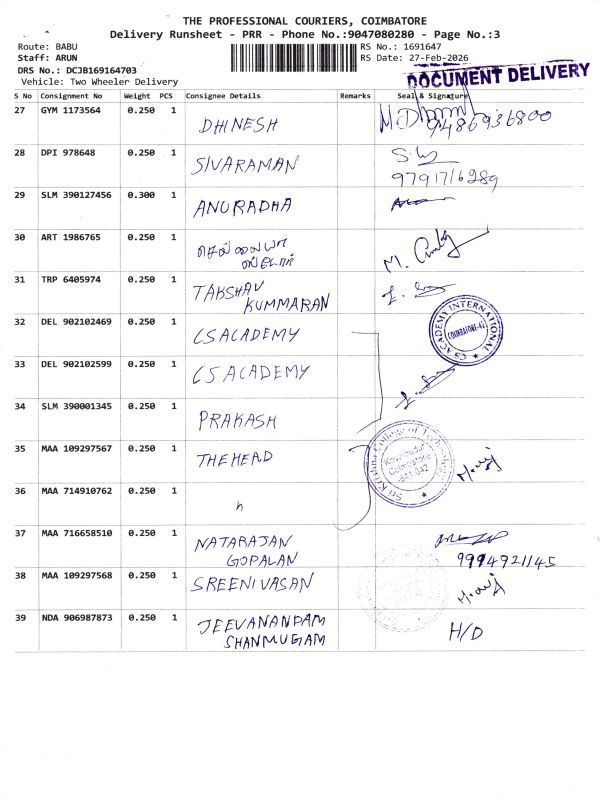 THE PROFESSIONAL COURIERS, COIMBATORE
Delivery Runsheet - PRR - Phone No.:9047080280 - Page No.:3
Route: BABU
RS No.: 1691647
Staff: ARUN
RS Date: 27-Feb-2026
DRS No.: DCJB169164703
Vehicle: Two Wheeler Delivery
DOCUMENT DELIVERY
S No Consignment No Weight PCS Consignee Details Remarks Seal & Signature
27 GYM 1173564 0.250 1 DHINESH 9486936800
28 DPI 978648 0.250 1 SIVARAMAN
9791716289
29 SLM 390127456 0.300 1 ANURADHA
30 ART 1986765 0.250 1 செல்லையா
ஸ்டோர் M.
31 TRP 6405974 0.250 1 TAKSHAV
KUMMARAN
32 DEL 902102469 0.250 1 CS ACADEMY
CS ACADEMY INTERNATIONAL
COIMBATORE-42
33 DEL 902102599 0.250 1 CS ACADEMY
34 SLM 390001345 0.250 1 PRAKASH
35 MAA 109297567 0.250 1 THE HEAD
Sri Krishna College of Technology
Kovaipudur
Coimbatore
-641 042
36 MAA 714910762 0.250 1 h
37 MAA 716658510 0.250 1 NATARAJAN
GOPALAN
9994921145
38 MAA 109297568 0.250 1 SREENIVASAN
39 NDA 906987873 0.250 1 JEEVANANDAM
SHANMUGAM
H/D